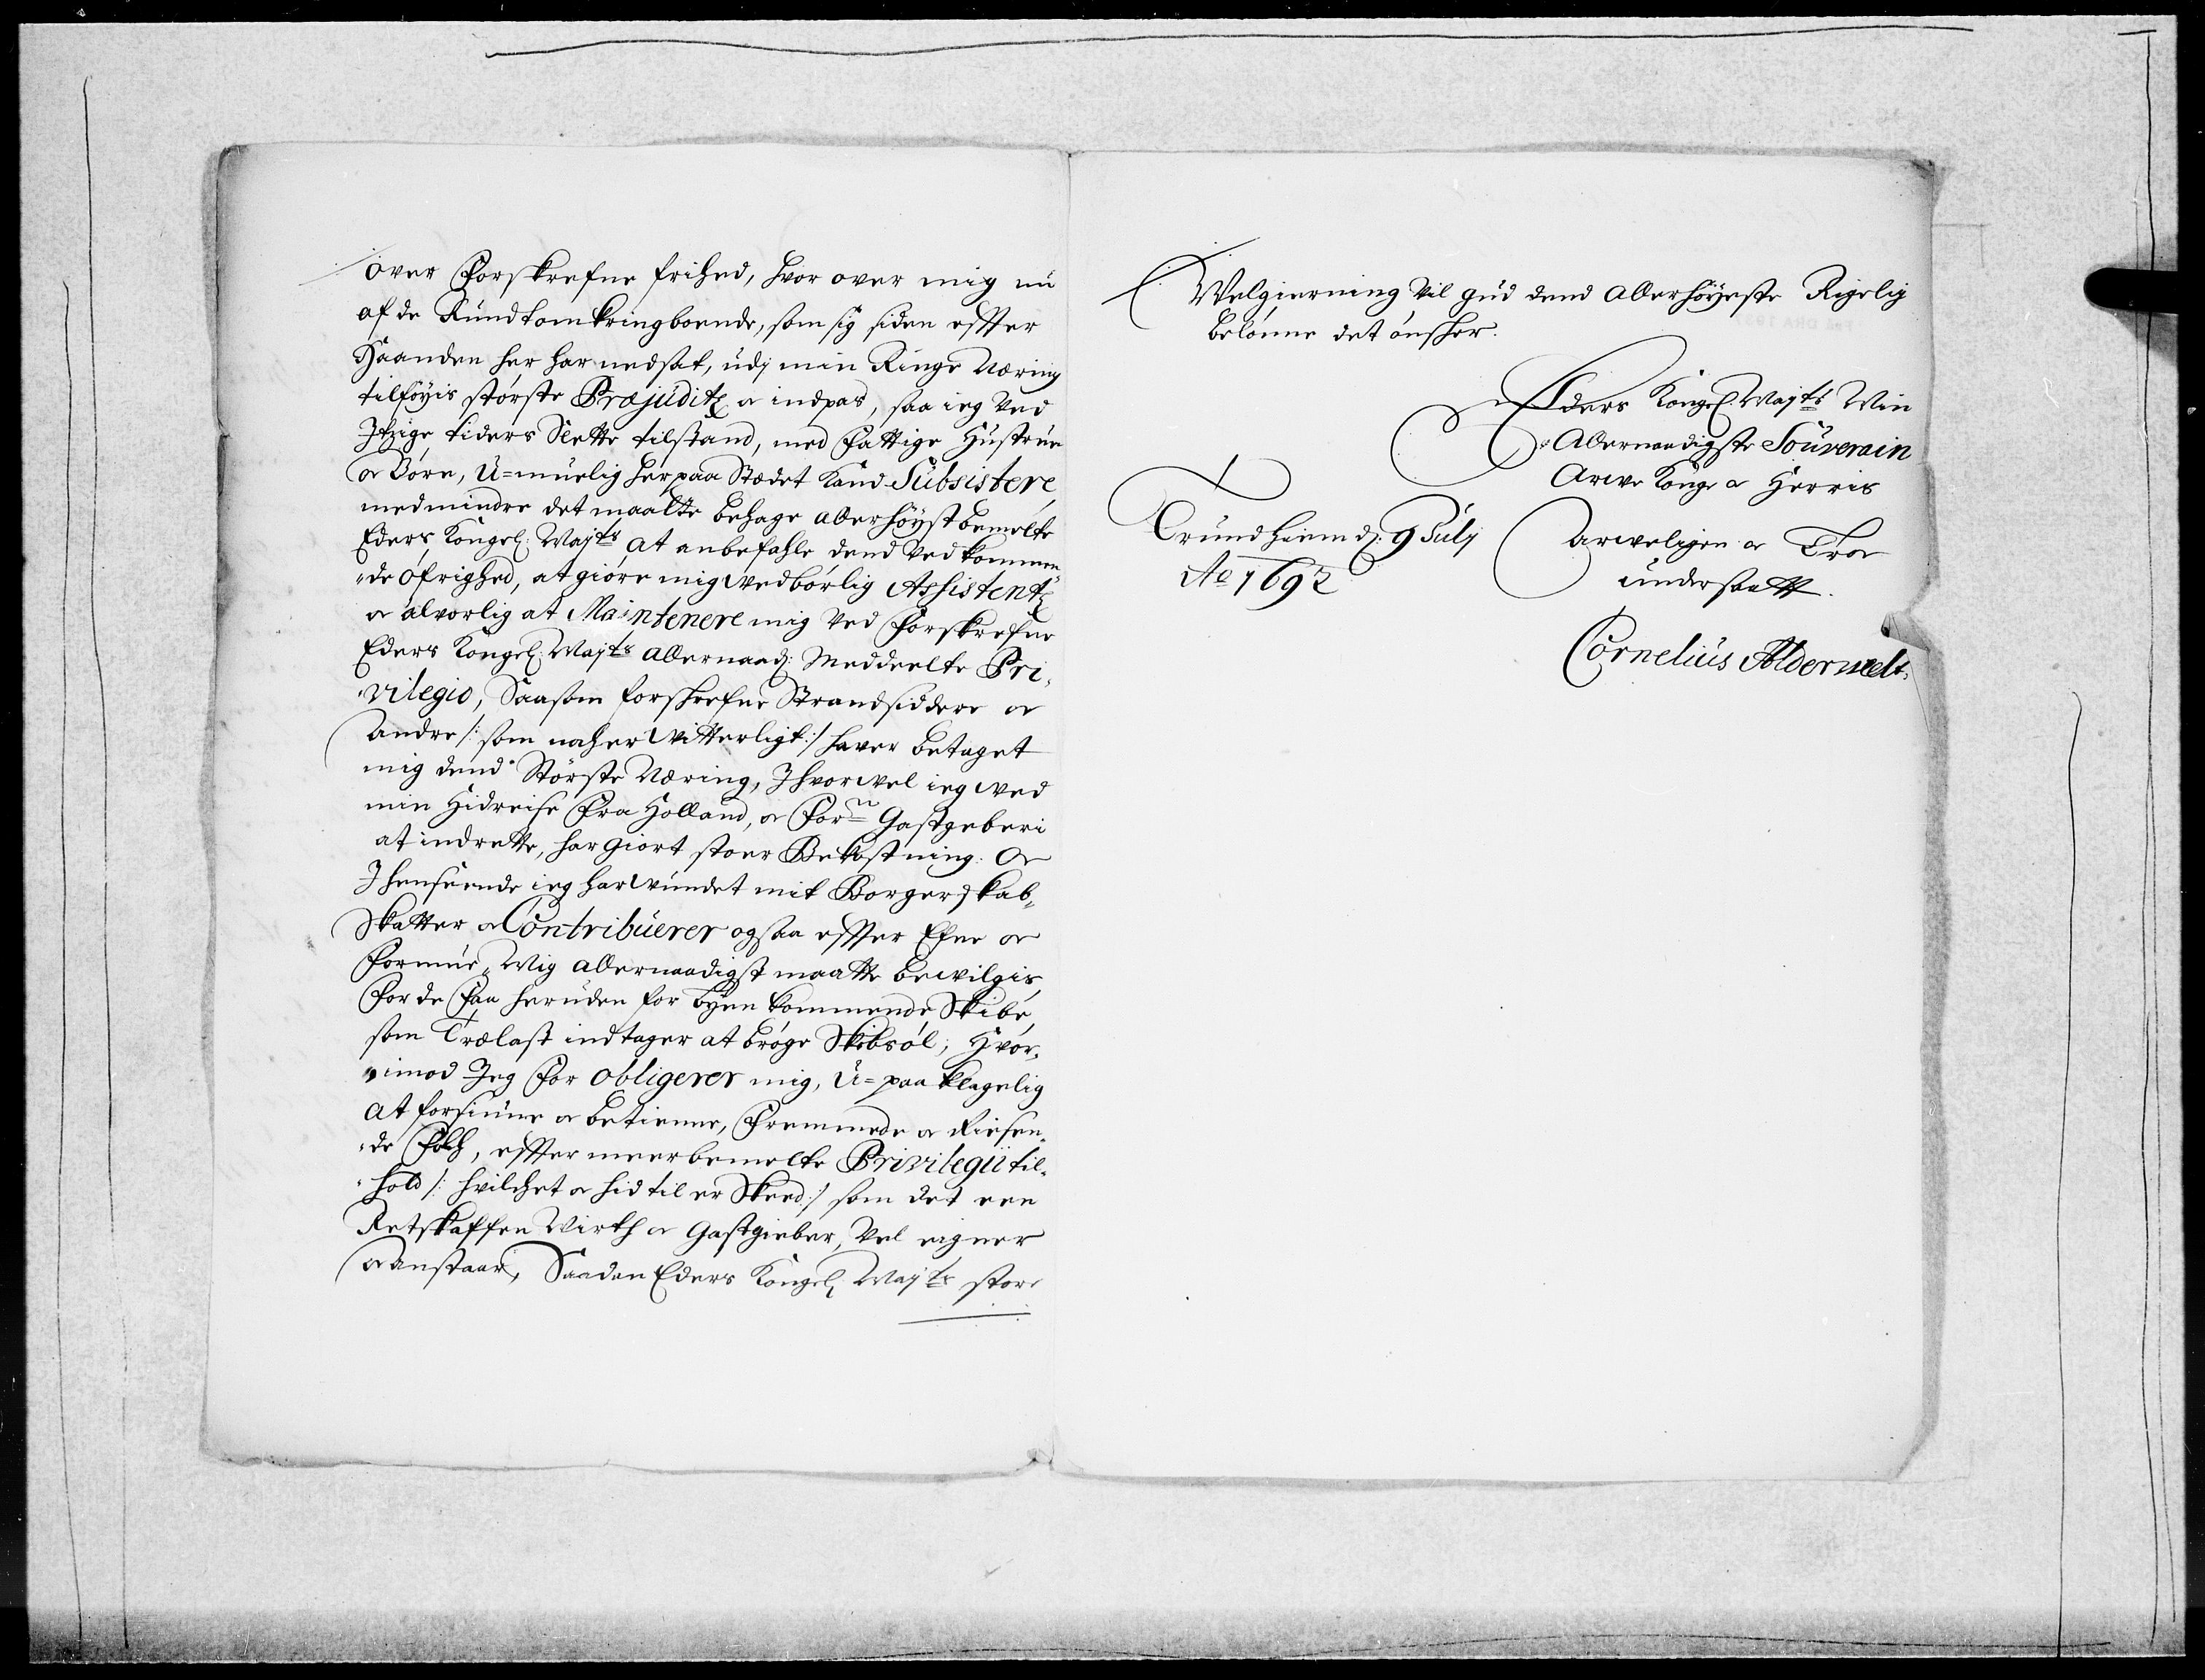 over Forskrefne frihed, hvor over mig nu
af de Rundtomkringboende, som sig siden effter
Haanden her har nedsat, udj min Ringe Næring
tilföyis störste Præjuditz og indpas, saa ieg ved
Itzige tiders Slette tilstand, med Fattige Hustrue
og Börn, U=muelig her paa Stædet Kand Subsistere,
med mindre det maatte behage allerhöystbemelte
Eders Kongel: Maÿts at anbefahle dend Vedkommen-
de Öfrighed, at giöre mig wedbörlig Assistentz
og alvorlig at Maintenere mig ved Forskrefne
Eders Kongel: Maÿts allernaad: Meddeelte Pri-
vilegio, Saasom forskrefne Strandsiddere og
Andre /: som noksom Witterligt :/ haver betaget
mig dend Störste Næring, Ihvorvel ieg wed
min Hidreise Fra Holland, og Forn Gastgeberi
at indrette, har Giort stoer Bekostning: Og
I henseende ieg har wundet mit Borgerskab,
Skatter og Contribuerer ogsaa effter Efne og
Formue, Mig allernaadigst maatte bewilgis,
For de Faa heruden for byen kommende Skibe,
som Trælast indtager at brøge Skibsöl; Hvor-
imod Jeg For obligerer mig, U=paaklagelig
at forsiune og betienne, Fremmede og Riesen-
de Folch, effter meerbemelte Privilegii til-
hold /: hvilchet og hid til er Skeed :/ som det een
Retskaffen Wirth og Gastgieber, Vel eigner
og anstaar, Saadan Eders Kongel: Maÿts store
Welgierning vil gud dend Allerhöyeste Rigelig
belönne det önsker.
Eders Kongel: Maÿts Min
Allernaadigste Souverain
Arwe Konge og Herris
Trundhiem d: 9 Julÿ
Ao 1692
Arweligen og Troe
undersaatt.
Cornelius Alderwelt.